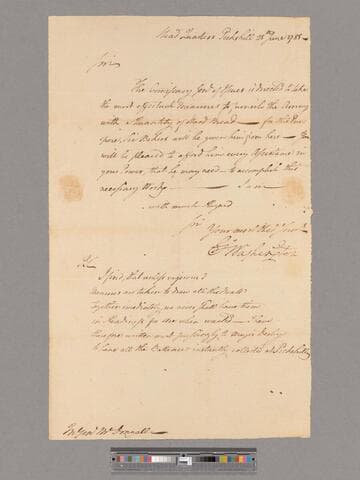 Head Quarters Peekskill 28th June 1781 —
Sir,
The Commissary Genl of Issues is directed to take
the most effectual measures to furnish the Army
with a Quantity of Hard Bread — for this Pur-
pose, Six Bakers will be given him from here — You
will be pleased to afford him every Assistance in
your Power, that he may need to accomplish this
necessary Work — I am
with much Regard
Sir
Your most Obed Serv
Go Washington
I find, that unless vigorous
measures are taken to draw all the Boats
together immediately, we never shall have them
in readiness for use when wanted — I have
therefore written most pressingly to Major
to have all the Batteaux instantly collected at Peekskill